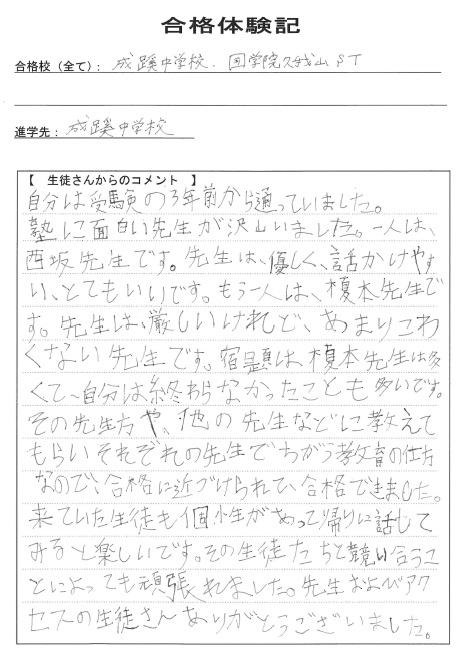 合格体験記
合格校（全て）： 成蹊中学校．国学院久我山ST
進学先： 成蹊中学校
【 生徒さんからのコメント 】
自分は受験の3年前から通っていました。
塾に面白い先生が沢山いました。一人は、
西坂先生です。先生は、優しく、話かけやす
い、とてもいいです。もう一人は、榎本先生で
す。先生は、厳しいけれど、あまりこわ
くない先生です。宿題は榎本先生は多
くて、自分は終わらなかったことも多いです。
その先生方や、他の先生などに教えて
もらいそれぞれの先生でちがう教育の仕方
なので、合格に近づけられて、合格できました。
来ていた生徒も個性があって帰りに話して
みると楽しいです。その生徒たちと競い合うこ
とによっても頑張れました。先生およびアク
セスの生徒さんありがとうございました。